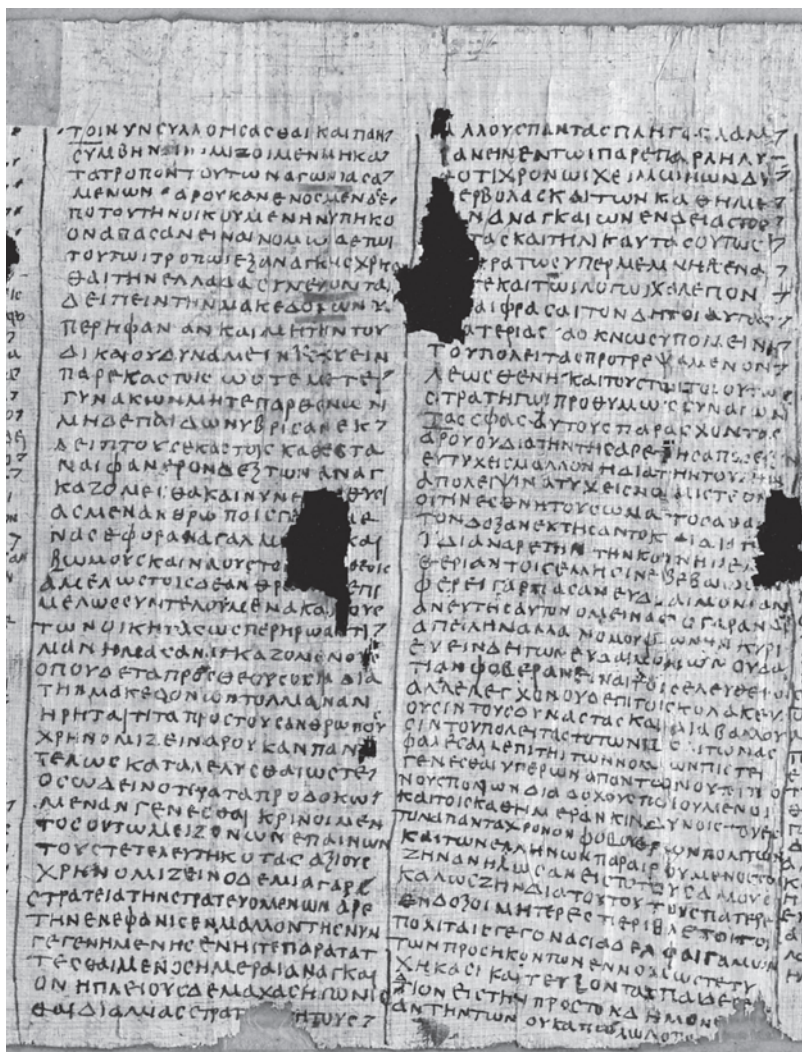 ΤΟΙΝΥΝϹΥΛΛΟΓΙϹΑϹΘΑΙΚΑΙΠΑΝ
ϹΥΜΒΗΝ ΜΙΖΟΙΜΕΝΜΗΚΑ
ΤΑΤΡΟΠΟΝΤΟΥΤΩΝΑΓΩΝΙϹΑ
ΜΕΝΩΝ ΑΡΟΥΚΑΝΕΝΟϹΜΕΝΔΕ
ΠΟΤΟΥΤΗΝΟΙΚΟΥΜΕΝΗΝΥΠΗΚΟ
ΟΝΑΠΑϹΑΝΕΙΝΑΙΝΟΜΩΔΕΤΩΙ
ΤΟΥΤΩΙΤΡΟΠΩΙΕΞΑΝΑΓΚΗϹΧΡΗϹ
ΘΑΙΤΗΝΕΛΛΑΔΑϹΥΝΕΛΟΝΤΑ
ΔΕΙΠΕΙΝΤΗΝΜΑΚΕΔΟΝΩΝΥ
ΠΕΡΗΦΑΝΑΝΚΑΙΜΗΤΗΝΤΟΥ
ΔΙΚΑΙΟΥΔΥΝΑΜΕΙΝΙϹΧΥΕΙΝ
ΠΑΡΕΚΑϹΤΟΙϹΩϹΤΕΜΗΤΕ
ΓΥΝΑΚΩΝΜΗΤΕΠΑΡΘΕΝΩΝ
ΜΗΔΕΠΑΙΔΩΝΥΒΡΙϹΑΝΕΚ
ΛΕΙΠΤΟΥϹΕΚΑϹΤΟΙϹΚΑΘΕϹΤΑ
ΝΑΙΦΑΝΕΡΟΝΔΕΞΩΝΑΝΑΓ
ΚΑΖΟΜΕΘΑΚΑΙΝΥΝΕ ΘΥϹΙ
ΑϹΜΕΝΑΝΘΡΩΠΟΙϹΓ Ε
ΝΑϹΕΦΟΡΑΝΑΓΑΛΜ ΚΑΙ
ΒΩΜΟΥϹΚΑΙΝΑΟΥϹΤΟ ΘΕΟΙϹ
ΑΜΕΛΩϹΤΟΙϹΔΕΑΝΘΡΩ ΕΠΙ
ΜΕΛΩϹϹΥΝΤΕΛΟΥΜΕΝΑΚΑΙ ΟΥϹ
ΤΩΝΟΙΚΗΤΑϹΩϹΠΕΡΗΡΩΑϹΤΙ
ΜΑΝΗΜΑϹΑΝΑΓΚΑΖΟΜΕΝΟΥϹ
ΟΠΟΥΔΕΤΑΠΡΟϹΘΕΟΥϹΟϹΙΑΔΙΑ
ΤΗΝΜΑΚΕΔΟΝΩΝΤΟΛΜΑΝΑΝ
ΗΡΗΤΑΙΤΙΤΑΠΡΟϹΤΟΥϹΑΝΘΡΩΠΟΥϹ
ΧΡΗΝΟΜΙΖΕΙΝΑΡΟΥΚΑΝΠΑΝ
ΤΕΛΩϹΚΑΤΑΛΕΛΥϹΘΑΙΩϹΤΕ
ΟϹΩΔΕΙΝΟΤΕΡΑΤΑΠΡΟΔΟΚΩ
ΜΕΝΑΝΓΕΝΕϹΘΑΙΚΡΙΝΟΙΜΕΝ
ΤΟϹΟΥΤΩΜΕΙΖΟΝΩΝΕΠΑΙΝΩΝ
ΤΟΥϹΤΕΤΕΛΕΥΤΗΚΟΤΑϹΑΞΙΟΥϹ
ΧΡΗΝΟΜΙΖΕΙΝΟΔΕΜΙΑΓΑΡ
ϹΤΡΑΤΕΙΑΤΗΝϹΤΡΑΤΕΥΟΜΕΝΩΝΑΡΕ
ΤΗΝΕΝΕΦΑΝΙϹΕΝΜΑΛΛΟΝΤΗϹΝΥΝ
ΓΕΓΕΝΗΜΕΝΗϹΕΝΗΙΤΕΠΑΡΑΤΑΤ
ΤΕϹΘΑΙΜΕΝΟϹΗΜΕΡΑΙΑΝΑΓΚΑΙ
ΟΝΗΠΛΕΙΟΥϹΔΕΜΑΧΑϹΗΓΩΝΙϹ
ΘΑΙΔΙΑΜΙΑϹϹΤΡΑΤ ΗΤΟΥϹ
ΑΛΛΟΥϹΠΑΝΤΑϹΠΛΗΓΑϹΛΑΜ
ΑΝΕΙΝΕΝΤΩΙΠΑΡΕΛΗΛΥ
ΟΤΙΧΡΟΝΩΙΧΕΙΜΩΝΩΝΔΥ
ΕΡΒΟΛΑϹΚΑΙΤΩΝΚΑΘΗΜΕ
ΝΑΝΑΓΚΑΙΩΝΕΝΔΕΙΑϹΤΟϹ
ΤΑϹΚΑΙΤΗΛΙΚΑΥΤΑϹΟΥΤΩϹ
ΚΡΑΤΩϹΥΠΕΡΜΕΜΝΗΚΕΝΑ
ΤΕΚΑΙΤΩΙΛΟΓΩΙΧΑΛΕΠΟΝ
ΑΙΦΡΑϹΑΙΤΟΝΔΗΤΟΙΑΥΤΑϹ
ΑΤΕΡΙΑϹΑΟΚΝΩϹΥΠΟΜΕΙΝΑΙ
ΤΟΥΠΟΛΕΙΤΑϹΠΡΟΤΡΕΨΑΜΕΝΟΝ
ΛΕΩϹΘΕΝΗΚΑΙΤΟΥϹΤΩΙΤΟΙΟΥΤΩΙ
ϹΤΡΑΤΗΓΩΙΠΡΟΘΥΜΩϹϹΥΝΑΓΩΝΙ
ΤΑϹϹΦΑϹΑΥΤΟΥϹΠΑΡΑϹΧΟΝΤΑϹ
ΑΡΟΥΟΥΔΙΑΤΗΝΤΗϹΑΡΕΤΗϹΑΠΟΔΕΙΞΙΝ
ΕΥΤΥΧΕΙϹΜΑΛΛΟΝΗΔΙΑΤΗΝΤΟΥΖΗΝ
ΑΠΟΛΕΙΨΙΝΑΤΥΧΕΙϹΝΟΜΙϹΤΕΟΝ
ΟΙΤΙΝΕϹΘΝΗΤΟΥϹΩΜΑΤΟϹΑΘΑΝΑ
ΤΟΝΔΟΞΑΝΕΚΤΗϹΑΝΤΟΚ ΔΙΑ
ΙΔΙΑΝΑΡΕΤΗΝΤΗΝΚΟΙΝΗΝΕΛΕΥ
ΘΕΡΙΑΝΤΟΙϹΕΛΛΗϹΙΝΕΒΕΒΑΙΩ
ΦΕΡΕΙΓΑΡΠΑϹΑΝΕΥΔΑΙΜΟΝΙΑΝ
ΑΝΕΥΤΗϹΑΥΤΟΝΟΜΕΙΝΑϹΤΟΓΑΡΑΝΔ
ΑΠΕΙΛΗΝΑΛΛΑΝΟΜΟΥΦΩΝΗΝΚΥΡΙ
ΕΥΕΙΝΔΕΙΤΩΝΕΥΔΑΙΜΟΝΩΝΟΥΔΑΙ
ΤΙΑΝΦΟΒΕΡΑΝΕΙΝΑΙΤΟΙϹΕΛΕΥΘΕΡΟΙϹ
ΑΛΛΕΛΕΓΧΟΝΟΥΔΕΠΙΤΟΙϹΚΟΛΑΚΕΥ
ΟΥϹΙΝΤΟΥϹΔΥΝΑϹΤΑϹΚΑΙΔΙΑΒΑΛΛΟΥ
ϹΙΝΤΟΥΠΟΛΕΙΤΑϹΤΟΤΩΝΠΟΛΙΤΩΝΑϹ
ΦΑΛΕϹΑΛΛΕΠΙΤΗΙΤΩΝΝΟΜΩΝΠΙϹΤΕΙ
ΓΕΝΕϹΘΑΙΥΠΕΡΩΝΑΠΑΝΤΩΝΟΥΤΟΙΠΟ
ΝΟΥϹΠΟΝΩΝΔΙΑΔΟΧΟΥϹΠΟΙΟΥΜΕΝΟΙ
ΚΑΙΤΟΙϹΚΑΘΗΜΕΡΑΝΚΙΝΔΥΝΟΙϹΤΟΥϹΕΙϹ
ΤΟΝΑΠΑΝΤΑΧΡΟΝΟΝΦΟΒΟΥϹΤΩΝΠΟΛΙΤΩΝ
ΚΑΙΤΩΝΕΛΛΗΝΩΝΠΑΡΑΙΡΟΥΜΕΝΟΙΤΟ
ΖΗΝΑΝΗΛΩϹΑΝΕΙϹΤΟΤΟΥϹΑΛΛΟΥϹ
ΚΑΛΩϹΖΗΝΔΙΑΤΟΥΤΟΥϹΠΑΤΕΡΕϹ
ΕΝΔΟΞΟΙΜΗΤΕΡΕϹΠΕΡΙΒΛΕΠΤΟΙΤΟΙϹ
ΠΟΛΙΤΑΙϹΓΕΓΟΝΑϹΙΑΔΕΛΦΑΙΓΑΜΩΝ
ΤΩΝΠΡΟϹΗΚΟΝΤΩΝΕΝΝΟΜΩϹΤΕΤΥ
ΧΗΚΑϹΙΚΑΙΤΕΥΞΟΝΤΑΙΠΑΙΔΕϹΕΦ
ΔΙΟΝΕΙϹΤΗΝΠΡΟϹΤΟΝΔΗΜΟΝΕ
ΑΝΤΗΝΤΩΝΟΥΚΑΠΟΛΩΛΟΤ